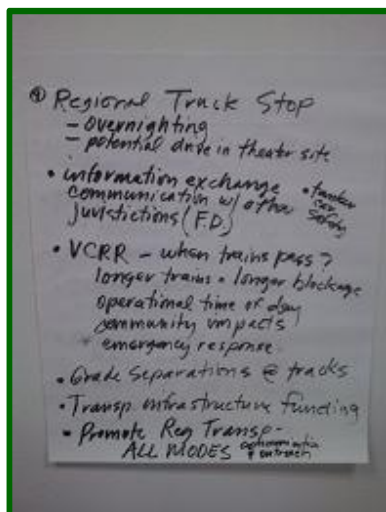 ④ Regional Truck Stop
- overnighting
- potential drive in theater site
• information exchange
communication w/ other
juristictions (F.D.)
• tanker
car
safety
• VCRR - when trains pass?
longer trains = longer blockage
operational time of day
community impacts
* emergency response
• Grade Separations @ tracks
• Transp. infrastructure funding
• Promote Reg Transp-
ALL MODES
& outreach